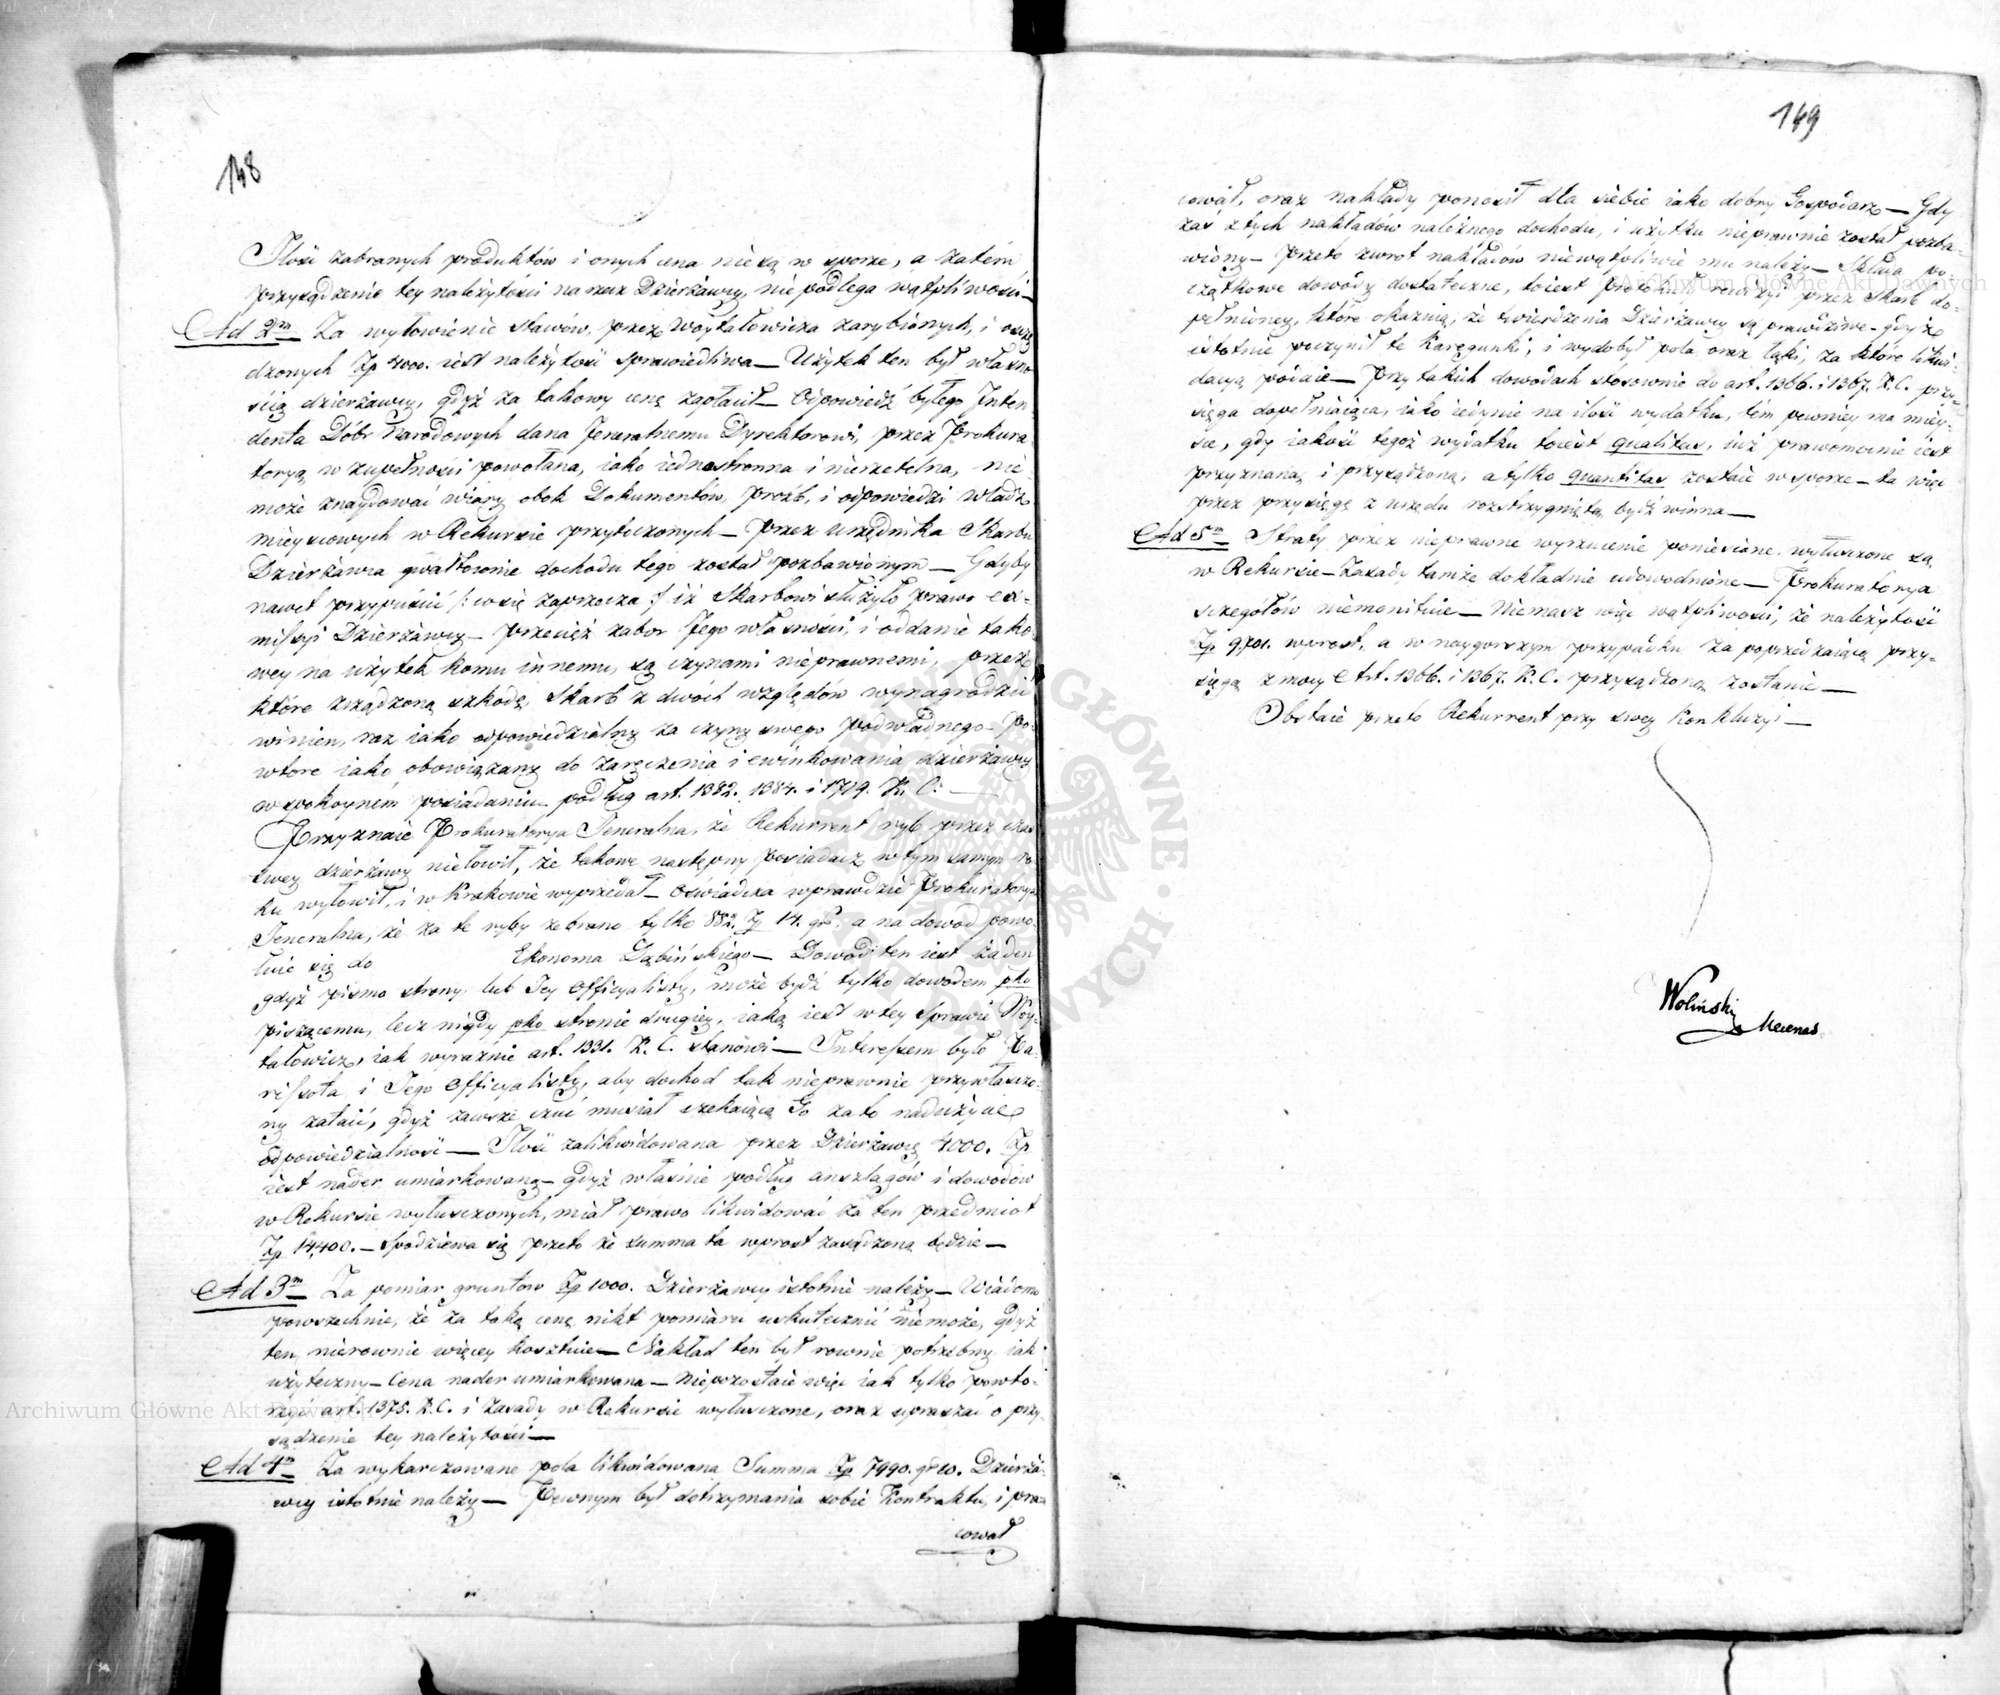 148
Ilość zabranych produktów i onych cena nie są w sporze, a zatém
przysądzenie tey należytości na rzecz Dzierżawcy, nie podlega wątpliwości—
Ad 2m Za wyłowienie stawów, przez Woytałowicza zarybionych, i osą
dzonych Zp 4000. iest należytość sprawiedliwa— Użytek ten był własno
ścią dzierżawcy, gdyż za takowy cenę zapłacił— Odpowiedź byłego Inten
denta Dóbr Narodowych dana Jeneralnemu Dyrektorowi, przez Prokura
toryą w zupełności powołana, iako iednostronna i nierzetelna, nie
może znaydować wiary obok Dokumentów, proźb, i odpowiedzi władz
mieyscowych w Rekursie przytoczonych— Przez urzędnika Skarbu
Dzierżawca gwałtownie dochodu tego został pozbawionym— Gdyby
nawet przypuścić /: co się zaprzecza :/ iż Skarbowi służyło prawo ex-
missyi Dzierżawcy— przecięż zabor Jego własności, i oddanie tako
wey na użytek komu innemu, są czynami nieprawnemi, przez
które zrządzoną szkodę, Skarb z dwóch względów wynagrodzić
winien, raz iako odpowiedzialny za czyny swego podwładnego— po-
wtore iako obowiązany do zaręczenia i ewinkowania dzierżawcy
w spokoyném posiadaniu podług art. 1382. 1384. i 1719. K. C. —
Przyznaie Prokuratorya Jeneralna, że Rekurrent ryb przez czas
swey dzierżawy niełowił, że takowe następny posiadacz w tym samym ro
ku wyłowił, i w Krakowie wyprzedał— Oświadcza wprawdzie Prokuratorya
Jeneralna, że za te ryby zebrano tylko 882. Zp 14. gr, a na dowod powo
łuie się do Ekonoma Dąbińskiego— Dowod ten iest żaden
gdyż pismo strony lub Jey Officyalisty, może bydź tylko dowodem pko
piszącemu, lecz nigdy pko stronie drugiey, iaką iest w tey Sprawie Woy-
tałowicz, iak wyraźnie art. 1331. K. C. stanowi— Interessem było Pa-
rissota i Jego Officyalisty, aby dochod tak nieprawnie przywłaszczo-
ny zataić, gdyż zawsze czuć musiał czekaiącą Go za to nadużycie
odpowiedzialność— Ilość zalikwidowana przez Dzierżawcę 4000. Zp
iest nader umiarkowaną— gdyż właśnie podług anszlagów i dowodów
w Rekursie wyłuszczonych, miał prawo likwidować za ten przedmiot
Zp 14,400.— Spodziewa się przeto że summa ta wprost zasądzoną będzie—
Ad 3m Za pomiar gruntow Zp 1000. Dzierżawcy istotnie należy— Wiadomo
powszechnie, że za taką cenę nikt pomiaru uskutecznić niemoże, gdyż
ten nierownie więcey kosztuie— Nakład ten był rownie potrzebny iak
użyteczny— Cena nader umiarkowana— Niepozostaie więc iak tylko powto-
rzyć art. 1375. K. C. i zasady w Rekursie wyłuszczone, oraz upraszać o przy-
sądzenie tey należytości—
Ad 4m Za wykarczowane pola likwidowana Summa Zp 7990. gr 10. Dzierża-
wcy istotnie należy— Pewnym był dotrzymania sobie Kontraktu, i pra-
cował
149
cował, oraz nakłady ponosił dla siebie iako dobry Gospodarz— Gdy
zaś z tych nakładów należnego dochodu, i użytku nieprawnie został pozba-
wiony— przeto zwrot nakładów niewątpliwie mu należy— Składa po-
czątkowe dowody dostateczne, toiest protokół rewizyi przez Skarb do-
pełnioney, które okazuią, że twierdzenia Dzierżawcy są prawdziwe— gdyż
istotnie poczynił te Karczunki, i wydobył pola oraz łąki, za które likwi-
dacyą podaie— Przy takich dowodach stosownie do art. 1366. i 1367. K. C. przy-
sięga dopełniaiąca, iako iedynie na ilość wydatku, tém pewniey ma miey-
sce, gdy iakość tegoż wydatku toiest qualitas, iuż prawomocnie iest
przyznaną i przysądzoną, a tylko quantitas zostaie w sporze— ta więc
przez przysięgę z urzędu rozstrzygniętą bydź winna—
Ad 5m Straty przez nieprawne wyrzucenie poniesione wyłuszczone są
w Rekursie— Zasady tamże dokładnie udowodnione— Prokuratorya
szczegółów niemonituie— Niemasz więc wątpliwości, że należytość
Zp 9,701. wprost, a w naygorszym przypadku za poprzedzaiącą przy-
sięgą z mocy Art. 1366. i 1367. K. C. przysądzoną zostanie—
Obstaie przeto Rekurrent przy swey Konkluzyi—
Woliński
Mecenas
Archiwum Główne Akt Dawnych
Archiwum Główne Akt Dawnych